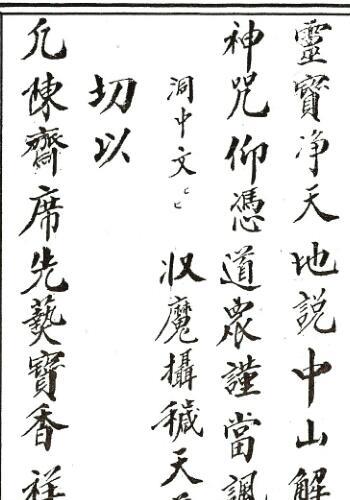 靈寳净天地說中山解
神咒仰憑道衆謹當諷
洞中文〻　収魔攝穢天
切以
凢陳齋席先爇寳香祥